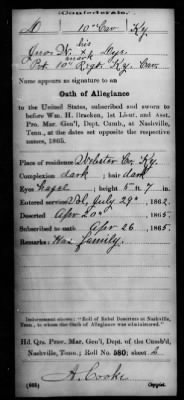 (Confederate.)
D 10 Cav Ky
his
Jno. N. x Dye
mark
Pvt 10th Regt. Ky. Cav.
Name appears as signature to an
Oath of Allegiance
to the United States, subscribed and sworn to
before Wm. H. Bracken, 1st Lieut. and Asst.
Pro. Mar. Gen'l, Dept. Cumb., at Nashville,
Tenn., at the dates set opposite the respective
names, 1865.
Place of residence Webster Co. Ky.
Complexion dark ; hair dark
Eyes hazel ; height 5 ft. 7 in.
Entered service Vol. July 29th , 1862.
Deserted Apr 20th , 1865.
Subscribed to oath Apr 26 , 1865.
Remarks: Has family.
Indorsement shows: "Roll of Rebel Deserters at Nashville,
Tenn., to whom the Oath of Allegiance was administered."
Hd. Qrs. Prov. Mar. Gen'l, Dept. of the Cumb'd,
Nashville, Tenn.; Roll No. 580; sheet 2
A. Cooke
(605) Copyist.